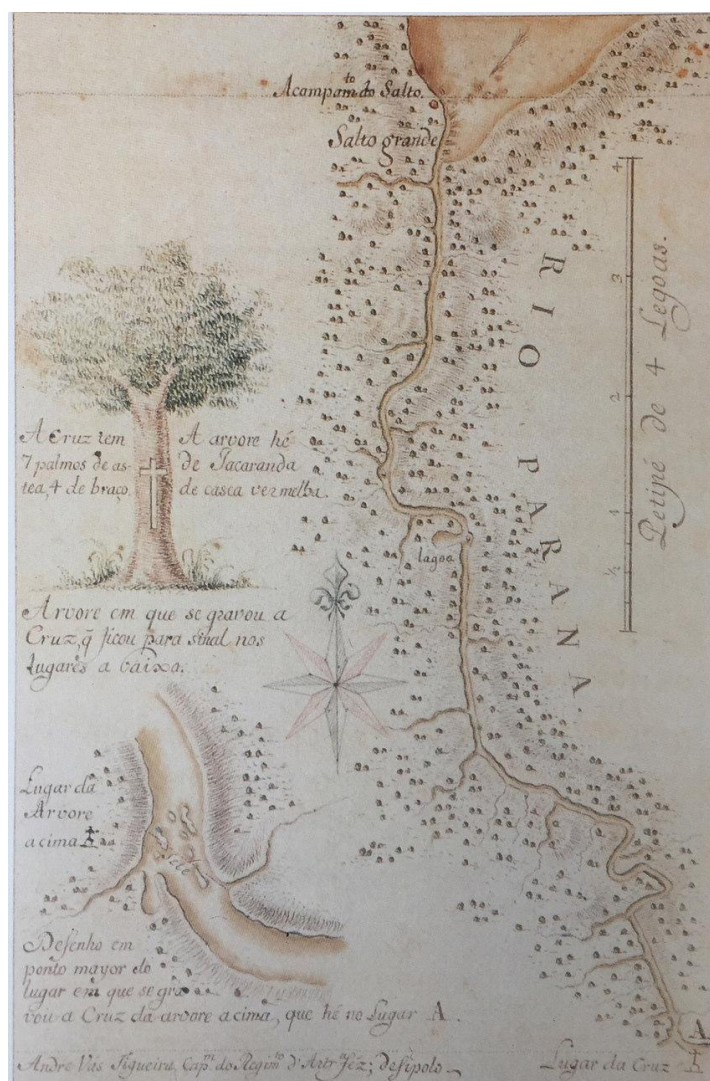 Acampam.to do Salto.
Salto grande
RIO PARANA.
4
3
2
1
½
Petipé de 4 Legoas.
A Cruz tem
7 palmos de as-
tea, 4 de braço.
A arvore hé
de Jacaranda
de casca vermelha.
lagoa
Arvore em que se gravou a
Cruz, q̃ ficou para sinal nos
Lugares a baixo.
Lugar da
Arvore
acima
Salto
Desenho em
ponto mayor do
lugar em que se gra
vou a Cruz da arvore acima, que hé no Lugar A.
A
Andre Vás Figueira, Cap.m do Regim.to d'Art.
Lugar da Cruz